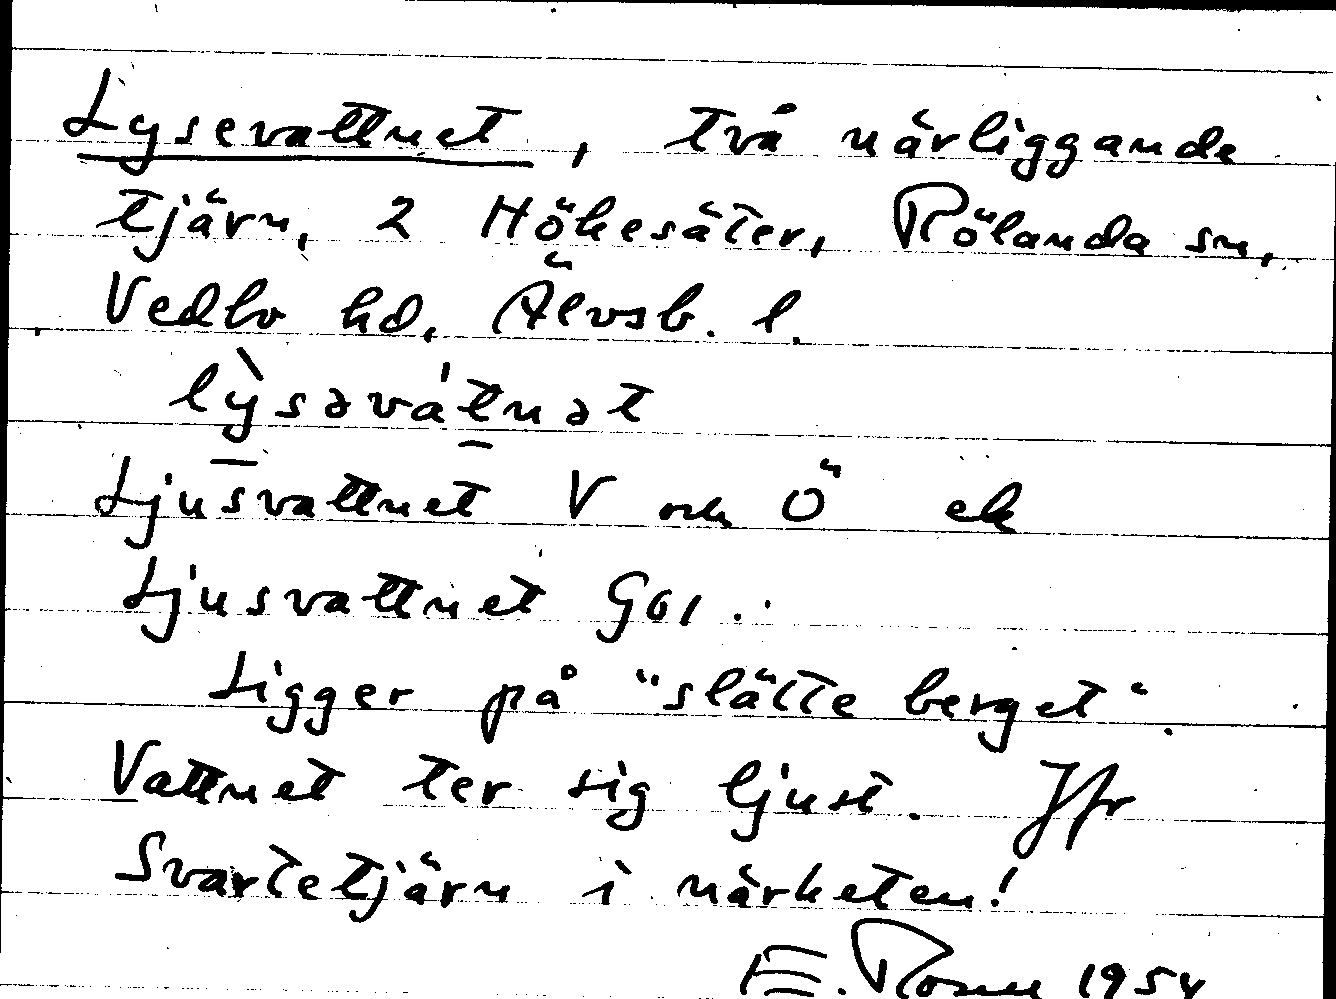 Lysevattnet, två närliggande
tjärn, 2 Hökesäter, Rölanda sn,
Vedbo hd, Älvsb. l.
lỳsəvátnət
Ljusvattnet V och Ö ek
Ljusvattnet G01.
Ligger på "slätte berget".
Vattnet ter sig ljust. Jfr
Svartetjärn i närheten!
E. 1954